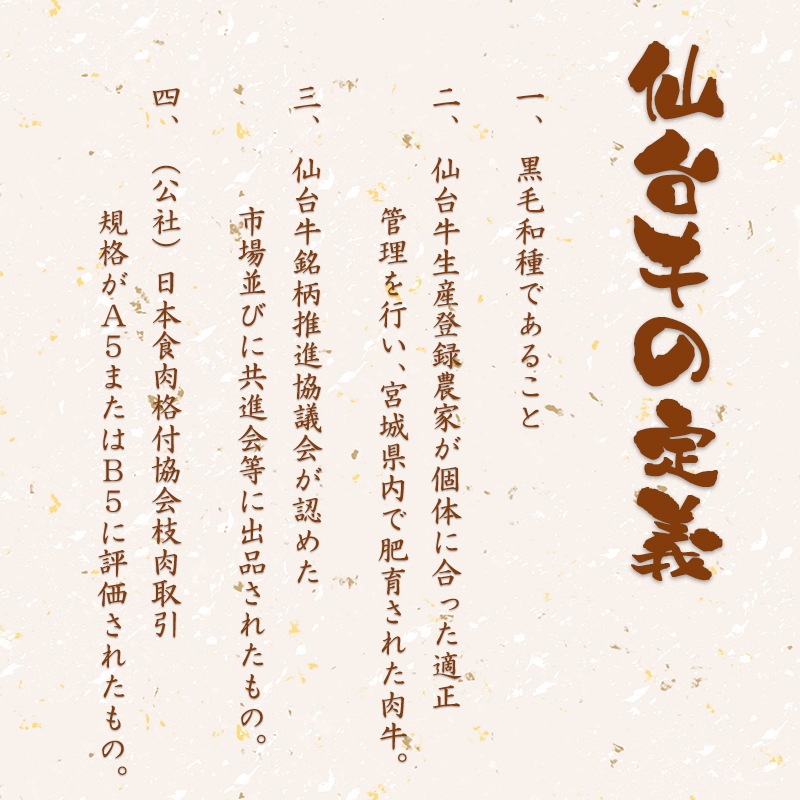 仙台牛の定義
一、黒毛和種であること
二、仙台牛生産登録農家が個体に合った適正
管理を行い、宮城県内で肥育された肉牛。
三、仙台牛銘柄推進協議会が認めた
市場並びに共進会等に出品されたもの。
四、（公社）日本食肉格付協会枝肉取引
規格がA5またはB5に評価されたもの。